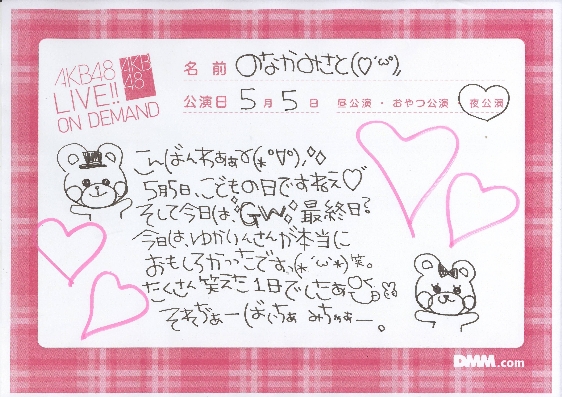 AKB48
LIVE!!
ON DEMAND
AKB
48
名 前 のなかみさと(♡´ω`)
公演日 5 月 5 日 昼公演 ・ おやつ公演 ・ 夜公演
こんばんわぁぁ(*°∀°)
5月5日、こどもの日ですねぇ♡
そして今日は、GW、最終日?
今日は、ゆかりんさんが本当に
おもしろかったですっ(*´ω`*)笑。
たくさん笑えた1日でしたぁ
それぢぁーばいちぁ みちゅぁー。
DMM.com